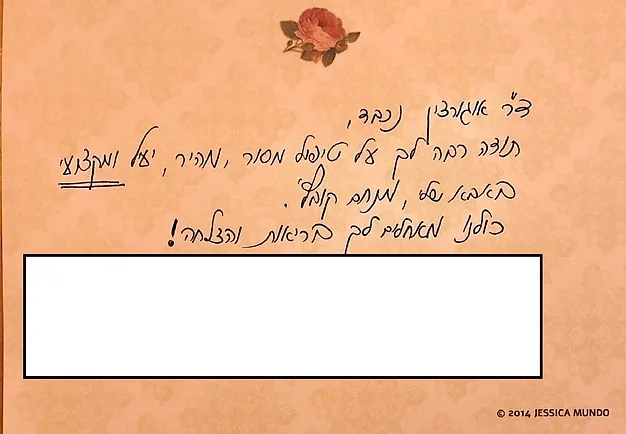 ד"ר אוגורצין נכבד,
תודה רבה לך על טיפול מסור, מהיר, יעיל ומקצועי
באבא שלי, מנחם קובל.
כולנו מאחלים לך בריאות והצלחה!
© 2014 JESSICA MUNDO